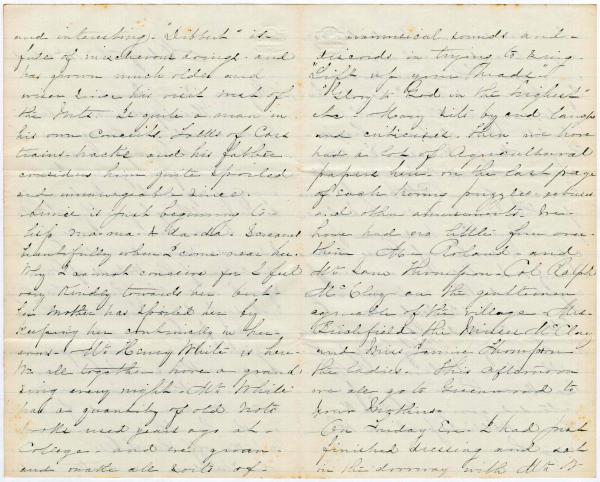 and interesting. "Dibbert" is
full of mischievous doings and
has grown much older and
wiser since his visit west of
the Mts. Is quite a man in
his own conceits. Talks of Cars
trains tracks and his father
considers him quite spoiled
and unmanageable since.
Annie is just beginning to
lisp mama & da-da. Screams
beautifully when I come near her.
Why I cannot conceive for I feel
very kindly towards her but
her Mother has spoiled her by
keeping her continually in her
arms. Mr Henry White is here.
We all together have a grand
sing every night. Mr White
has a quantity of old note
books used years ago at
College and we groan
and make all sorts of
unmusical sounds and
discords in trying to sing
"Lift up your heads"
"Glory to God in the highest"
&c. Henry sits by and laughs
and criticises. Then we have
had a lot of Agricultural
papers here on the last page
of each poems puzzles rebuses
and other amusements. We
have had no little fun over
them. Mr Roland and
Mr Thompson Col Ralph
McClay are the gentlemen
of the village Mrs
the Misses McClay
and Miss Jannie Thompson
the ladies. This afternoon
we all go to Greenwood to
your Mothers.
On Friday Eve. I had just
finished dressing and sat
in the doorway with Mr